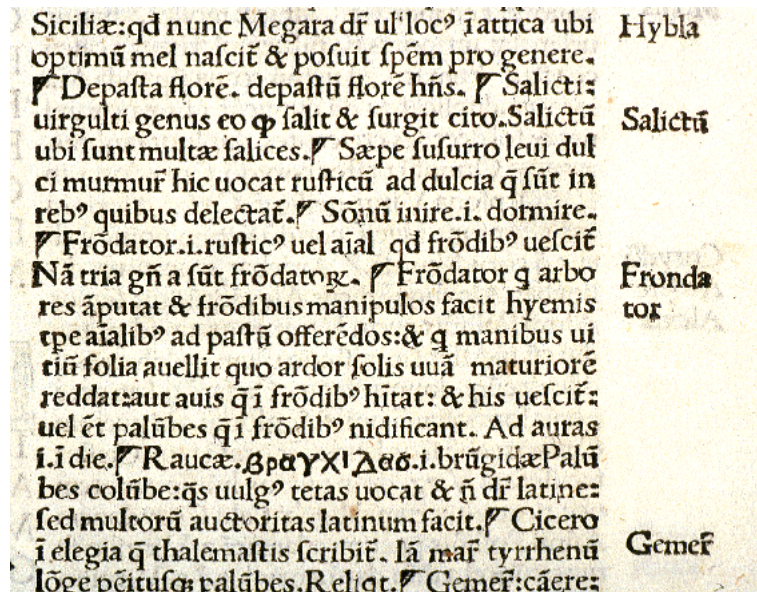 Siciliæ:qđ nunc Megara dr̄ ul' locꝰ ī attica ubi
optimū mel naſcit̄ & poſuit ſpēm pro genere.
Depaſta florē. depaſtū florē hn̄s. Salicti:
uirgulti genus eo ꝙ ſalit & ſurgit cito.Salictū
ubi ſunt multæ ſalices. Sæpe ſuſurro leui dul
ci murmur̄ hic uocat ruſticū ad dulcia q̄ ſūt in
rebꝰ quibus delectat̄. Sōnū inire.i. dormire.
Frōdator.i.ruſticꝰ uel aīal qđ frōdibꝰ ueſcit̄
Nā tria gn̄a ſūt frōdatoꝝ. Frōdator q arbo
res āputat & frōdibus manipulos facit hyemis
tpe aīalibꝰ ad paſtū offerēdos:& q manibus ui
tiū folia auellit quo ardor ſolis uuā maturiorē
reddat:aut auis q̄ ī frōdibꝰ hītat: & his ueſcit̄:
uel ēt palūbes q̄ ī frōdibꝰ nidificant. Ad auras
i.ī die. Raucæ.βραγχιλασ.i.brūgidæ Palū
bes colūbe:q̄s uulgꝰ tetas uocat & n̄ dr̄ latine:
ſed multorū auctoritas latinum facit. Cicero
ī elegia q̄ thalemaſtis ſcribit̄. Iā mar̄ tyrrhenū
lōge pēituſqꝫ palūbes.Reliqt. Gemer̄:cāere:
Hybla
Salictū
Fronda
tor
Gemer̄